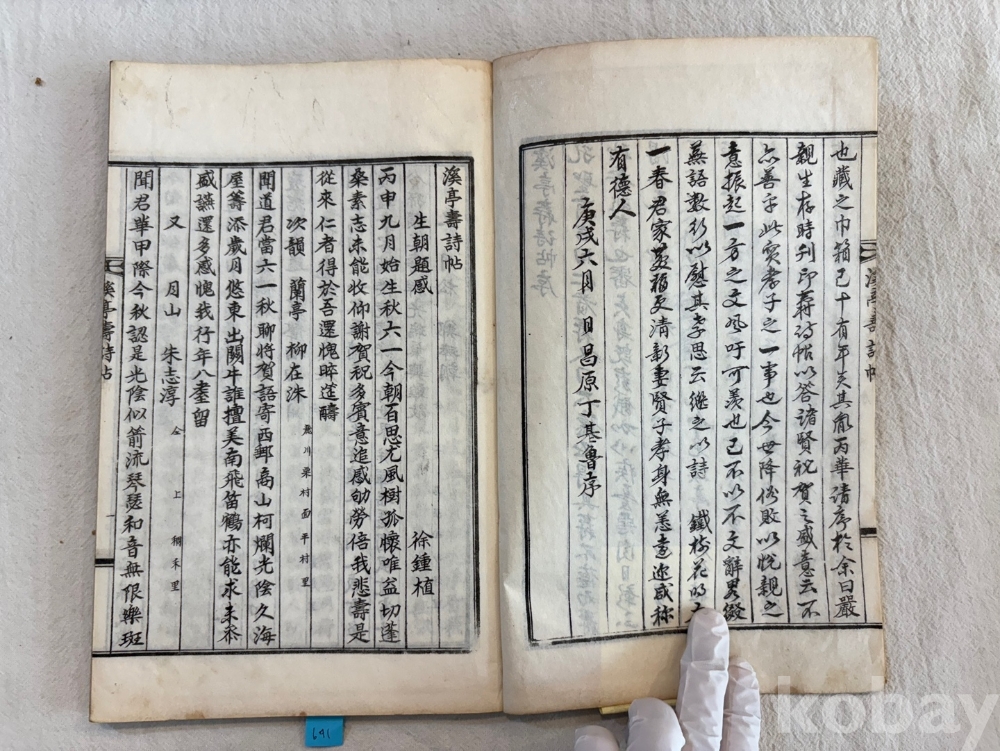 也藏之巾箱已十有年矣其胤丙華請序於余曰嚴
親生存時刊印壽詩帖以答諸賢祝賀之盛意云不
亦善乎此實孝子之一事也今世降俗敗以悅親之
意振起一方之文風吁可羨也已不以不文辭畧綴
蕪語數行以慰其孝思云繼之以詩 鐵樹花明
一春君家福更清新妻賢子孝身無恙遠迩咸称
有德人
庚戌六月 日昌原丁基魯序
溪亭壽詩帖
溪亭壽詩帖
生朝題感 徐鍾植
丙申九月始生秋六一今朝百思尤風樹孤懷唯益切蓬
桑素志未能收仰謝賀祝多賓意追感劬勞倍我悲壽是
從來仁者得於吾還愧晬筵疇
次韻 蘭亭 柳在洙 川栗村面平村里
聞道君當六一秋聊將賀語寄西郵高山柯爛光陰久海
屋籌添歲月悠東出關牛誰擅美南飛笛鶴亦能求未參
盛讌還多感愧我行年八耋留
又 月山 朱志淳 仝 上 稠禾里
聞君華甲際今秋認是光陰似箭流琴瑟和音無限樂斑
溪亭壽詩帖
一
641
kobay